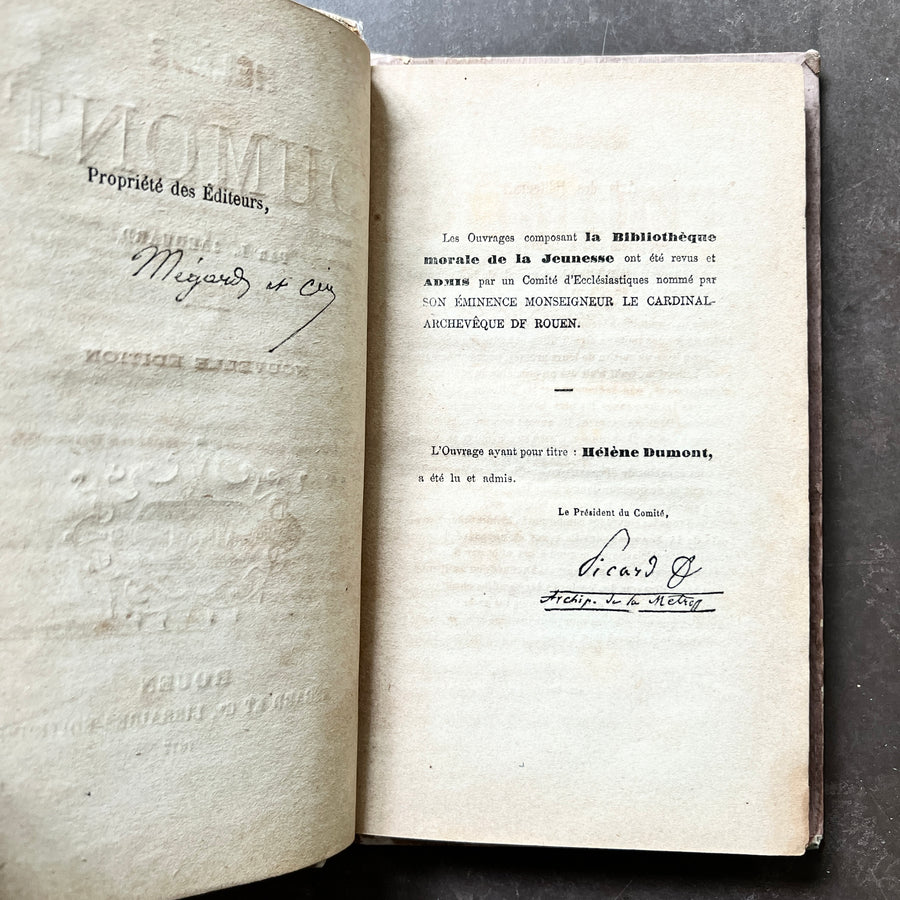 Propriété des Éditeurs,
Mégard et Cie
Les Ouvrages composant la Bibliothèque
morale de la Jeunesse ont été revus et
ADMIS par un Comité d'Ecclésiastiques nommé par
SON ÉMINENCE MONSEIGNEUR LE CARDINAL-
ARCHEVÊQUE DE ROUEN.
L'Ouvrage ayant pour titre : Hélène Dumont,
a été lu et admis.
Le Président du Comité,
Picard
Archip. de la Métrop